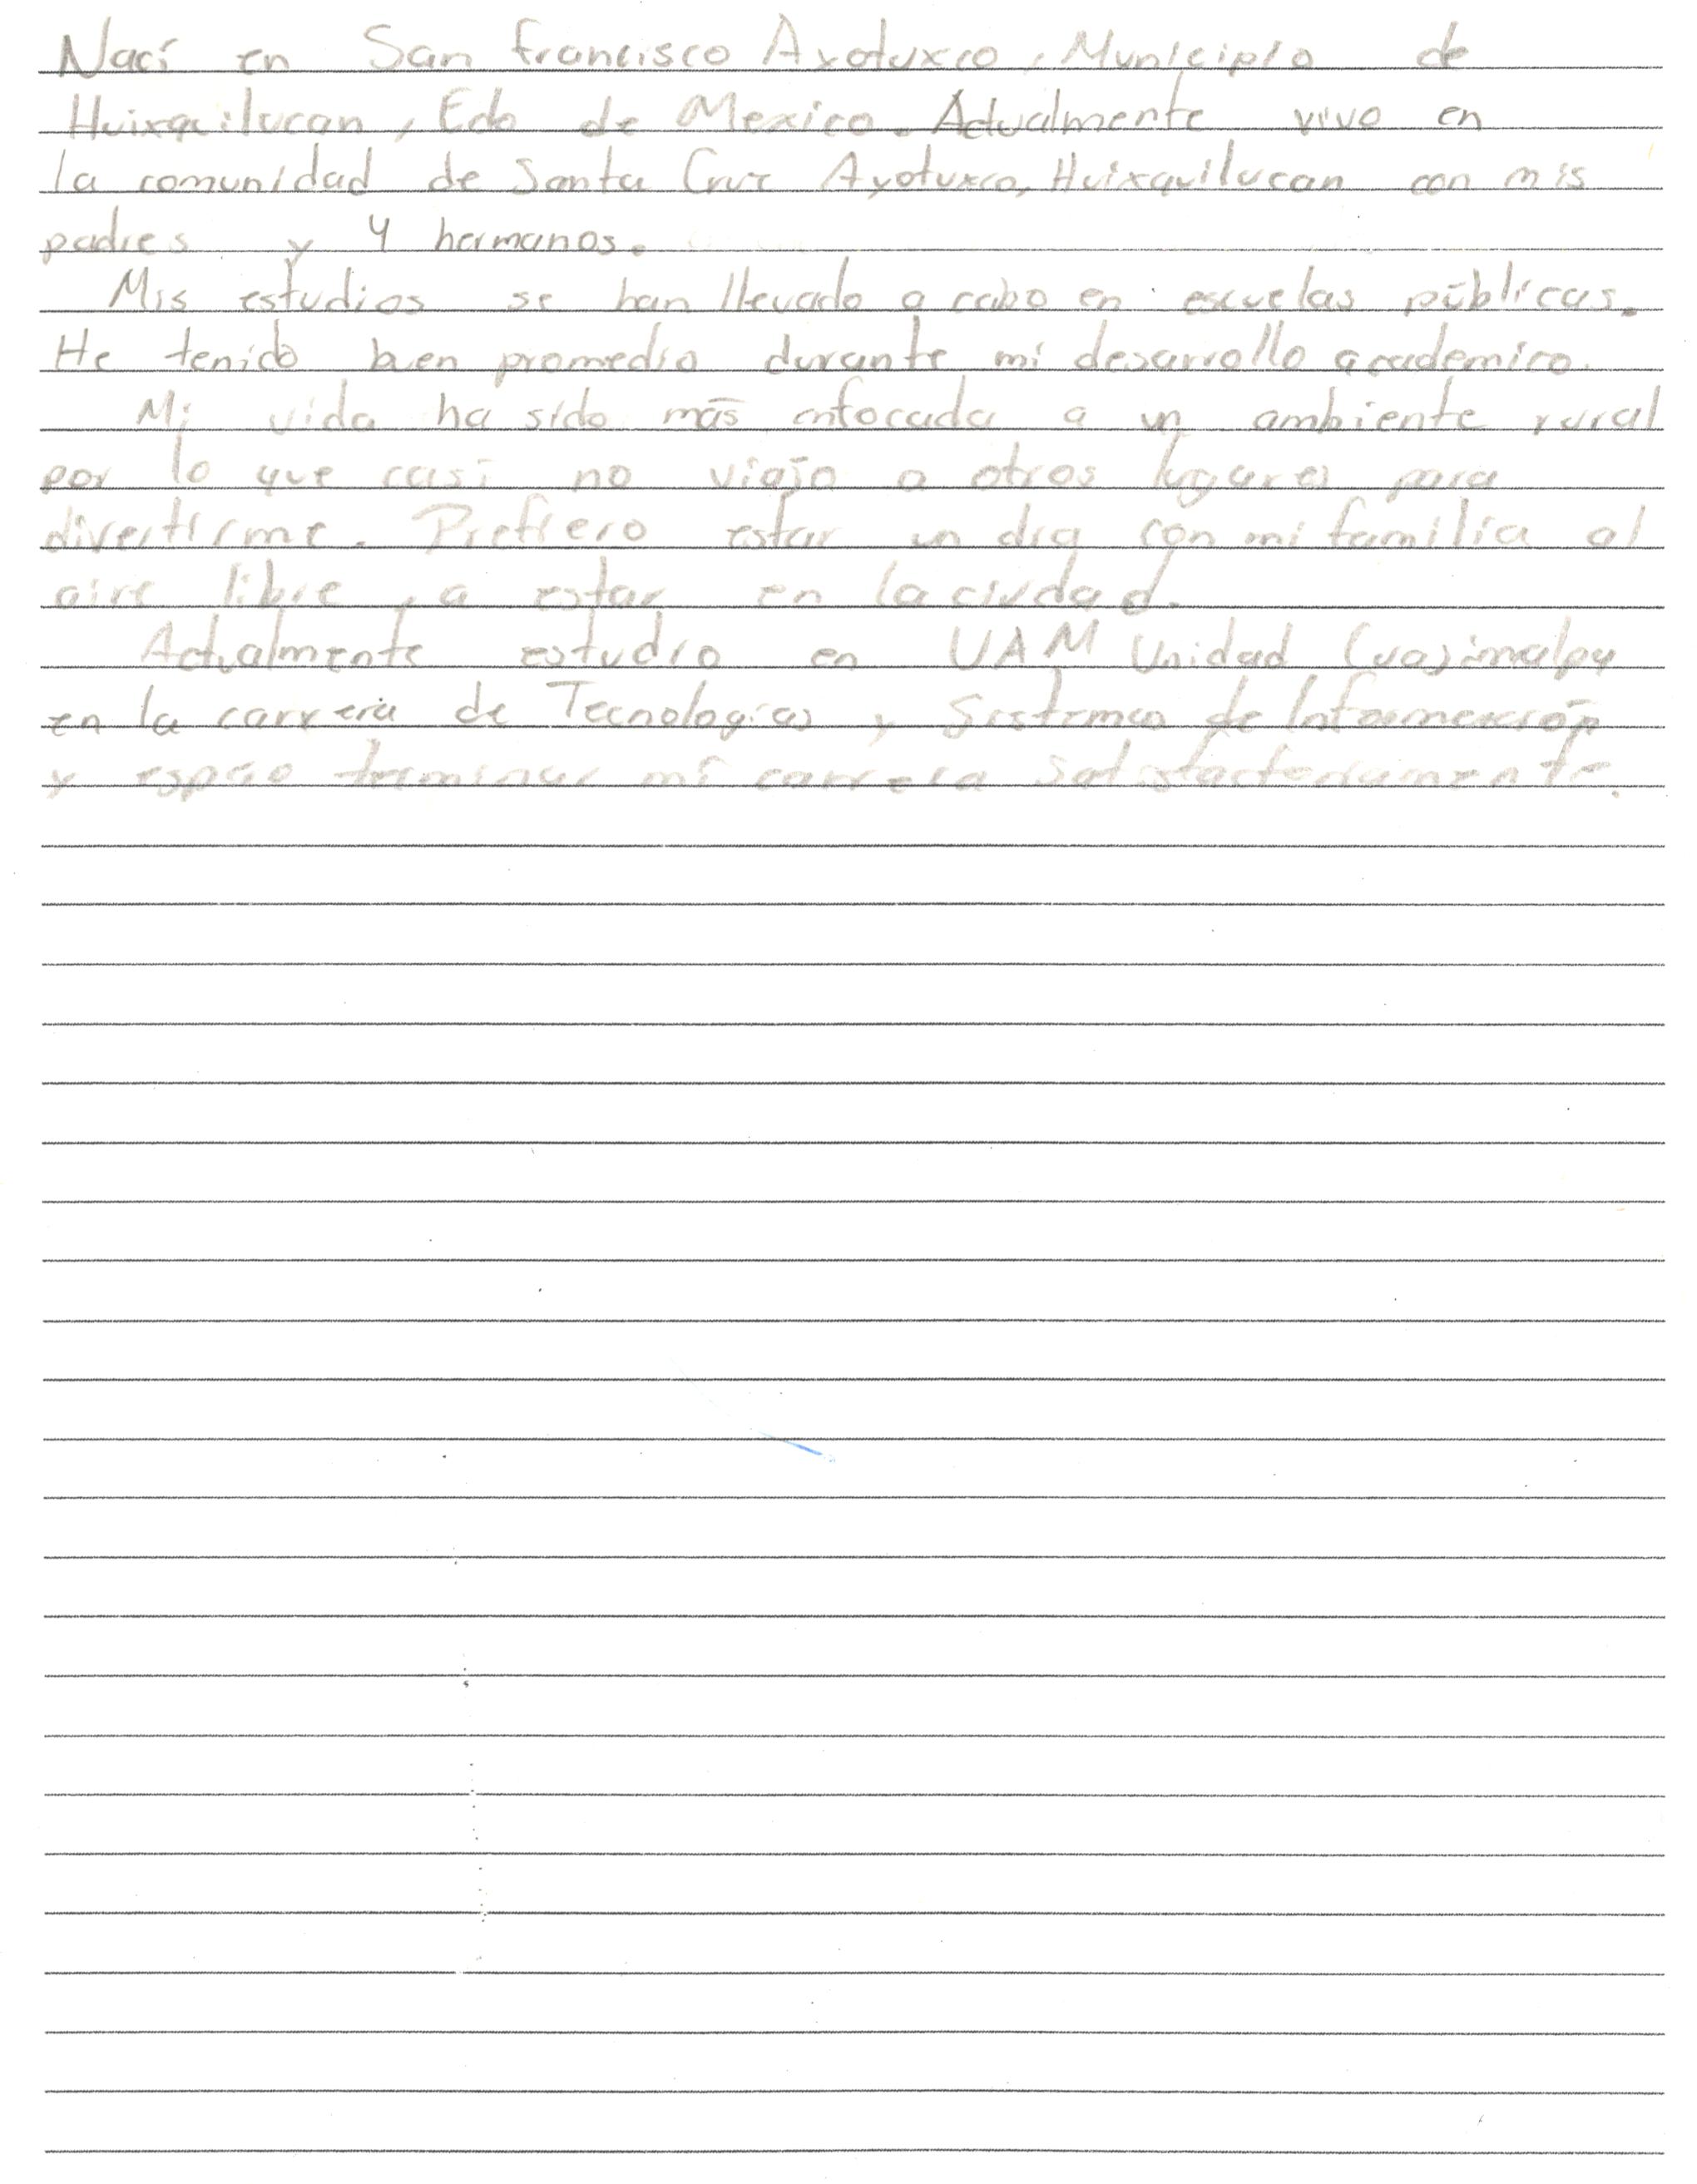 Nací en San Francisco Ayotuxco, Municipio de
Huixquilucan, Edo de Mexico. Actualmente vivo en
la comunidad de Santa Cruz Ayotuxco, Huixquilucan con mis
padres y 4 hermanos.
Mis estudios se han llevado a cabo en escuelas públicas.
He tenido buen promedio durante mi desarrollo academico.
Mi vida ha sido más enfocada a un ambiente rural
por lo que casi no viajo a otros lugares para
divertirme. Prefiero estar un dia con mi familia al
aire libre, a estar en la ciudad.
Actualmente estudio en UAM Unidad Cuajimalpa
en la carrera de Tecnologías y Sistemas de Información
y espero terminar mi carrera satisfactoriamente.